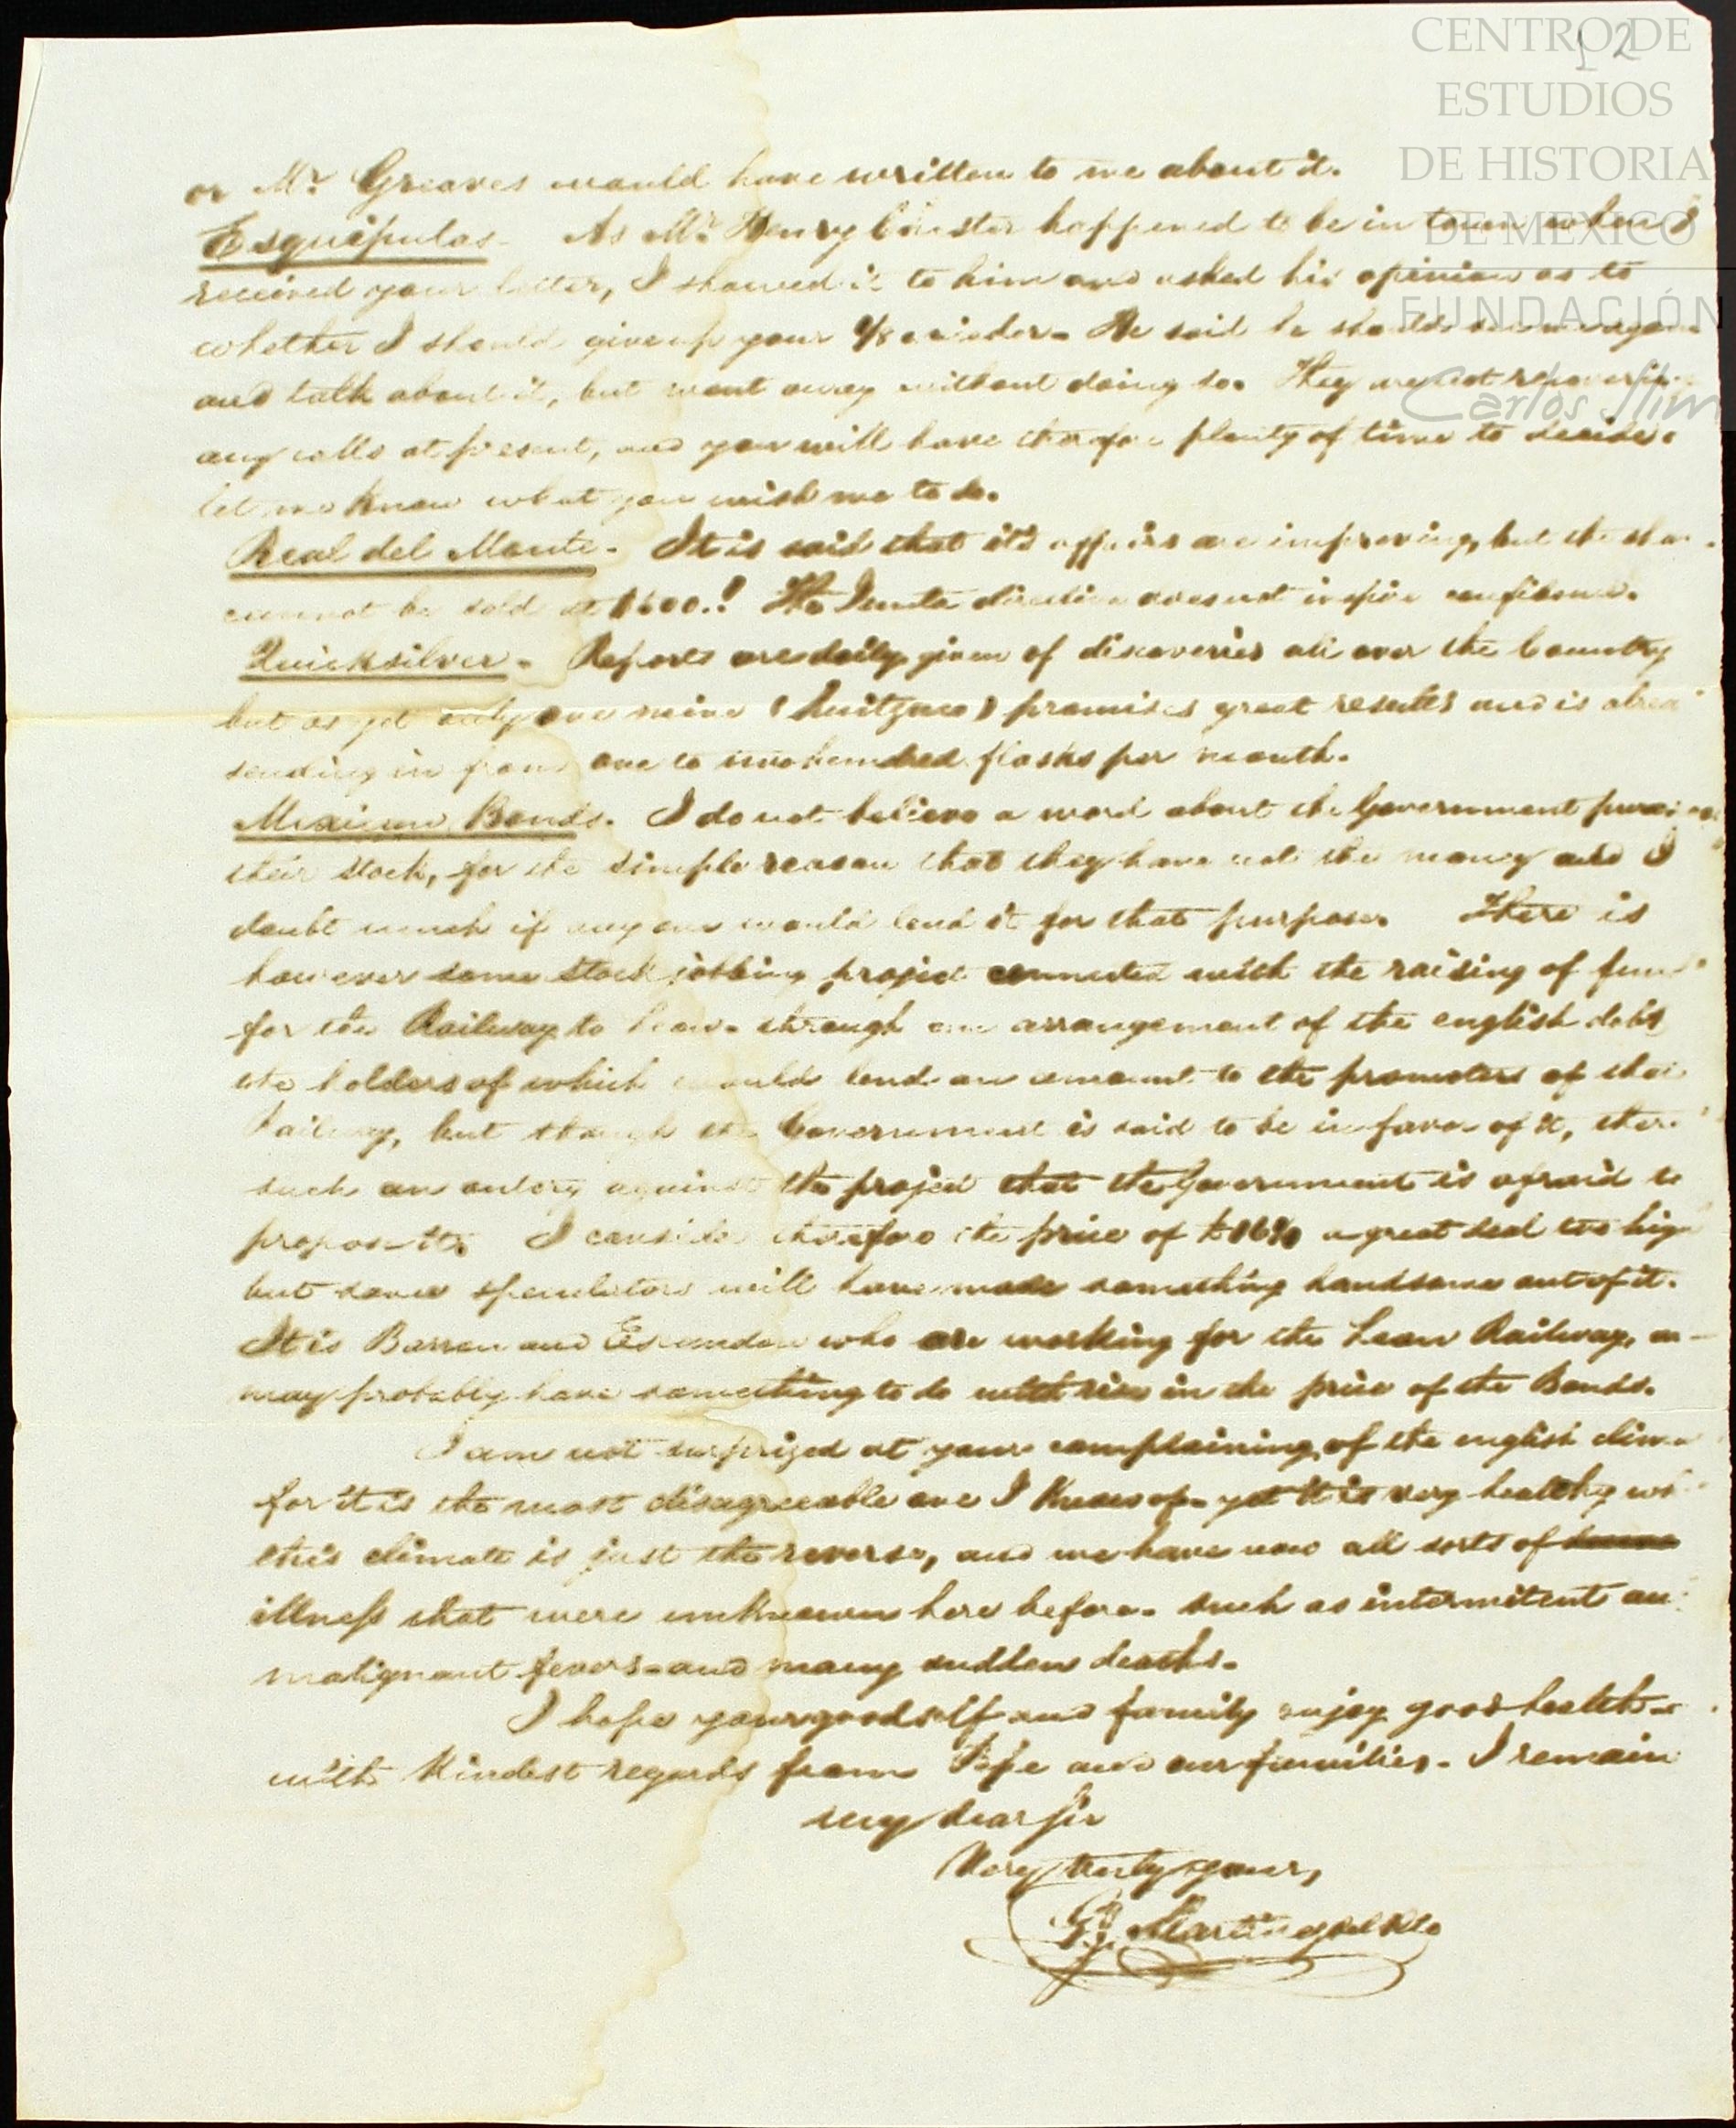 12
CENTRO DE
ESTUDIOS
DE HISTORIA
DE MEXICO
FUNDACIÓN
Carlos Slim
or Mr. Greaves would have written to me about it.
Esquipulas. As Mr. Henry happened to be in town when I
received your letter, I showed it to him and asked his opinion as to
whether I should give up your 1/8 He said he should see me again
and talk about it, but went away without doing so. They are not
any calls at present, and you will have therefore plenty of time to decide.
let me know what you wish me to do.
Real del Monte. It is said that it's affairs are improving, but the
cannot be sold at The Junta directiva does not inspire confidence.
Quicksilver. Reports are daily given of discoveries all over the Country
but as yet only one mine (Huitzuco) promises great results and is
sending in from one to two hundred flasks per month.
Mexican Bonds. I do not believe a word about the Government
their stock, for the simple reason that they have not the money and I
doubt much if any one would lend it for that purpose. There is
however some stock jobbing project connected with the raising of
for the Railway to Leon through an arrangement of the english debt
the holders of which would lend an amount to the promoters of that
Railway, but though the Government is said to be in favor of it,
such an outcry against the project that the Government is afraid to
propose it. I consider therefore the price of a great deal too
but some speculators will have made something handsome out of it.
It is Barron and Escandon who are working for the Leon Railway,
may probably have something to do with rise in the price of the Bonds.
I am not surprized at your complaining of the english
for it is the most disagreeable one I know of. yet it is very healthy
this climate is just the reverse, and we have now all sorts of
illness that were unknown here before. such as intermitent
malignant fevers and many sudden deaths.
I hope your goodself and family enjoy good health
with kindest regards from Pepe and our families. I remain
my dear Sir
Very truly yours,
Martinez del Rio